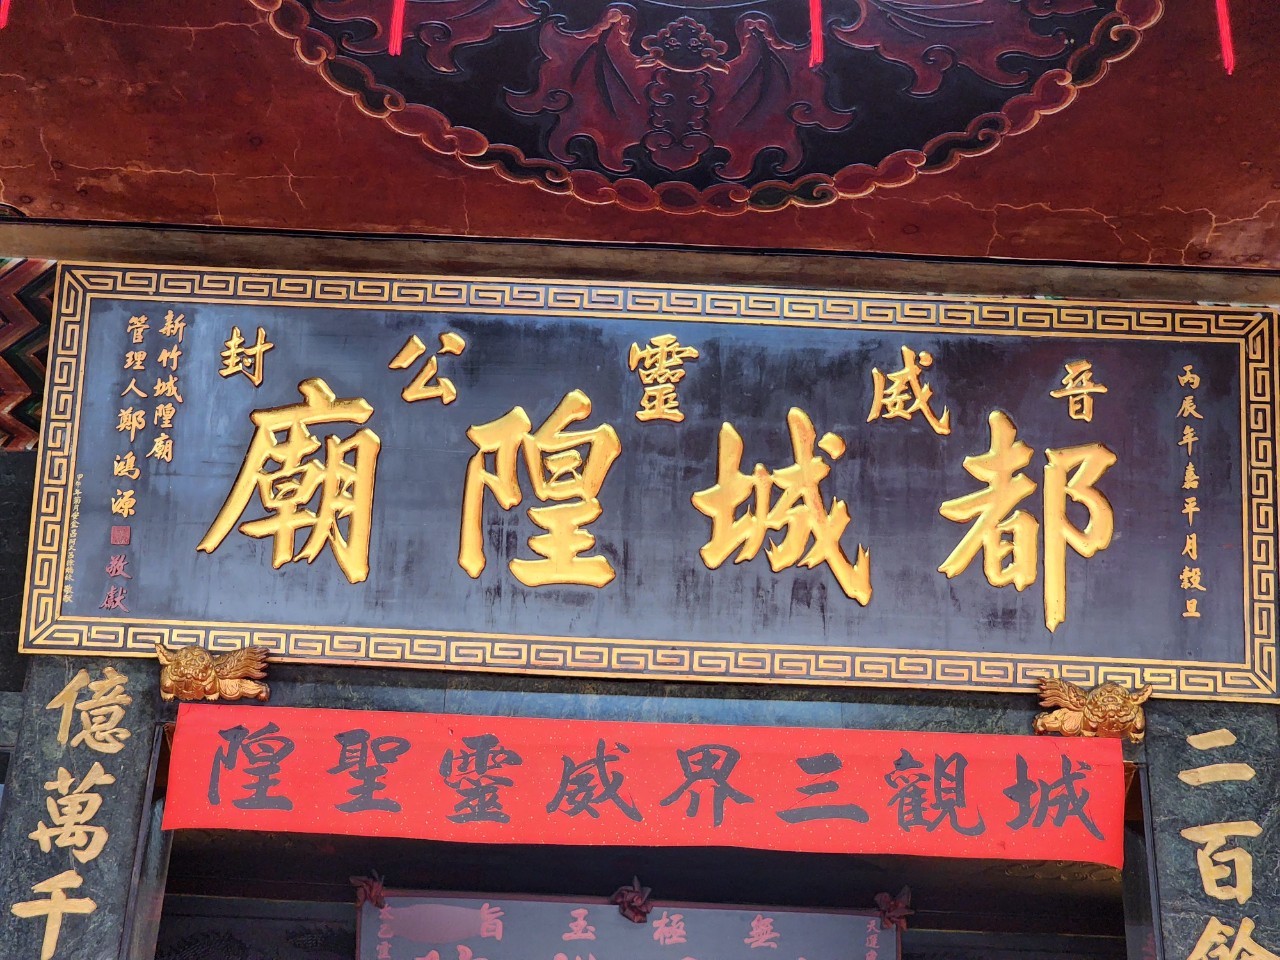 丙辰年嘉平月穀旦
晉威靈公封
都城隍廟
新竹城隍廟
管理人鄭鴻源
敬獻
城觀三界威靈聖隍
二百餘
億萬千
無極玉旨